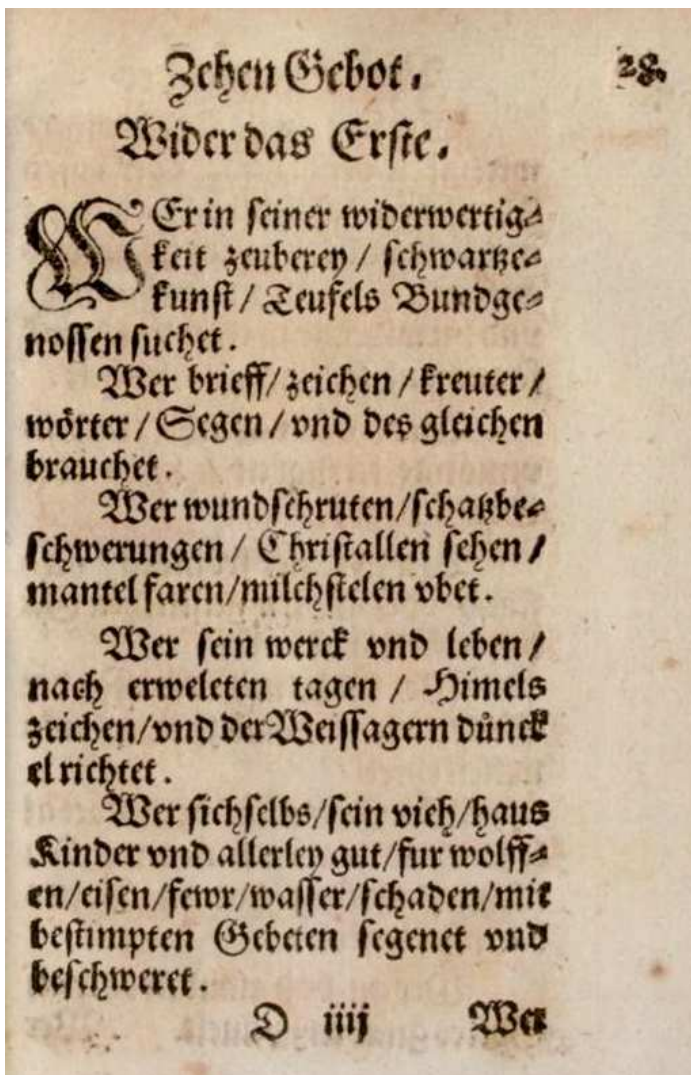 Zehen Gebot. 28.
Wider das Erste.
WEr in seiner widerwertig⸗
keit zeuberey / schwartze⸗
kunst / Teufels Bundge⸗
nossen suchet.
Wer brieff / zeichen / kreuter /
wörter / Segen / vnd des gleichen
brauchet.
Wer wundschruten / schatzbe⸗
schwerungen / Christallen sehen /
mantel faren / milchstelen vbet.
Wer sein werck vnd leben /
nach erweleten tagen / Himels
zeichen / vnd der Weissagern dünck
el richtet.
Wer sichselbs / sein vieh / haus
Kinder vnd allerley gut / fur wolff⸗
en / eisen / fewr / wasser / schaden / mit
bestimpten Gebeten segenet vnd
beschweret.
D iiij Wer